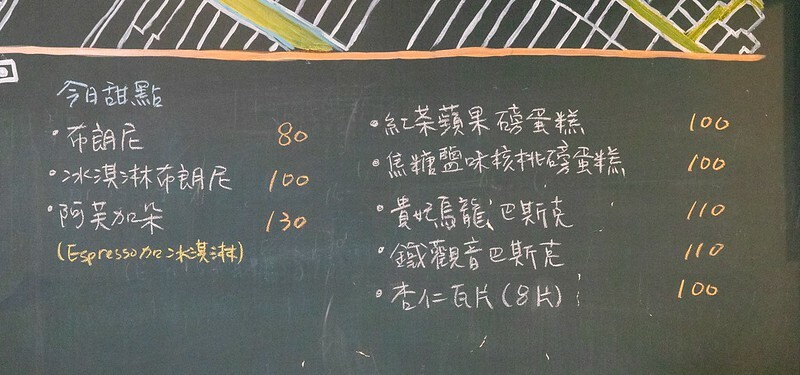 今日甜點
・布朗尼 80
・冰淇淋布朗尼 100
・阿芙加朵 130
(Espresso加冰淇淋)
・紅茶蘋果磅蛋糕 100
・焦糖鹽味核桃磅蛋糕 100
・貴妃烏龍巴斯克 110
・鐵觀音巴斯克 110
・杏仁瓦片(8片) 100